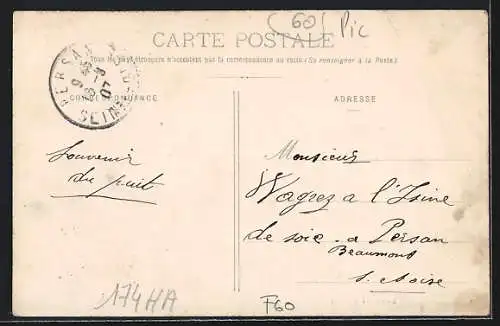 (60) Pic
CARTE POSTALE
Tous les pays étrangers n'acceptent pas la correspondance au recto (Se renseigner à la Poste)
PERSAN
SEINE
CORRESPONDANCE
ADRESSE
Souvenir
du puits
Monsieur
Wagrez a l'Usine
de soie - a Persan
Beaumont
S. Aoise
174HA
F60